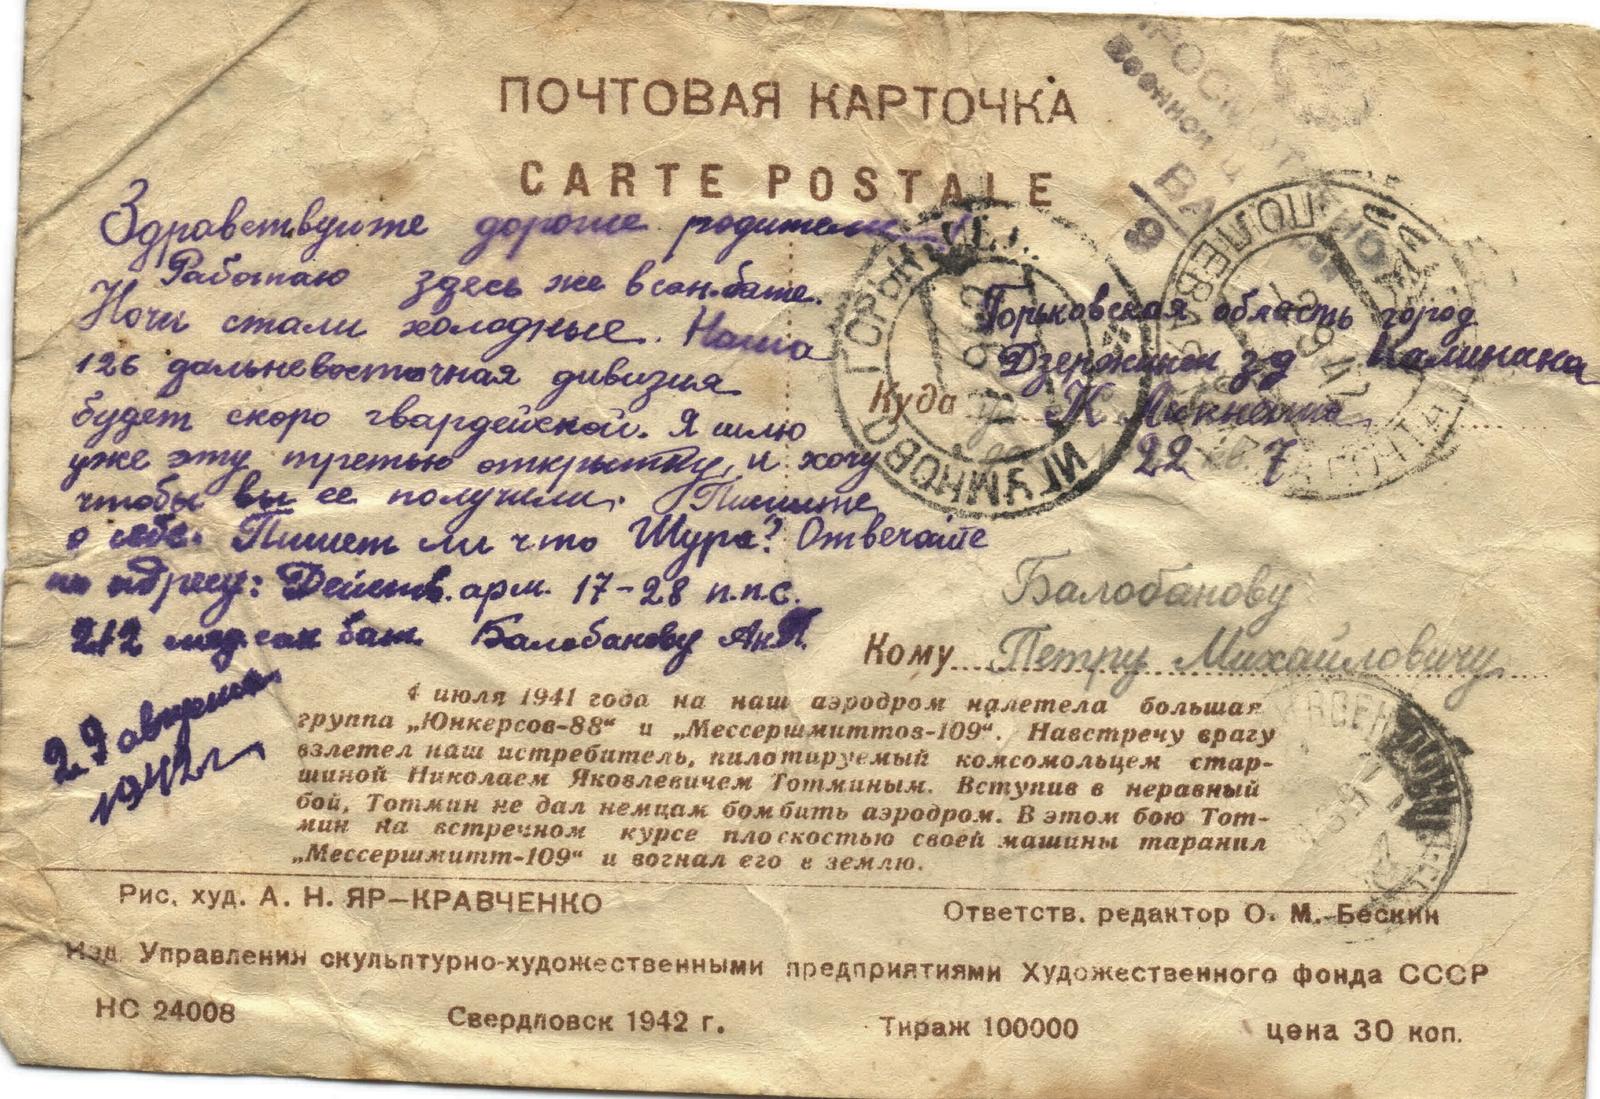 ПОЧТОВАЯ КАРТОЧКА
CARTE POSTALE
Здравствуйте дорогие родители!
Работаю здесь же в сан.бате.
Ночи стали холодные. Наша
126 дальневосточная дивизия
будет скоро гвардейской. Я шлю
уже эту третью открытку, и хочу
чтобы вы ее получили. Пишите
о себе. Пишет ли что Шура? Отвечайте
по адресу: Действ. арм. 17-28 п.п.с.
212 мед сан бат. Балобанову Ан.П.
29 августа
1942 г
ПРОСМОТРЕНО
Военной
ПОЛЕВАЯ ПОЧТА
ИГУМНОВО ГОРЬК
Горьковская область город
Дзержинск зд Калинина
Куда К Либкнехта
22 7
Балобанову
Кому Петру Михайловичу
4 июля 1941 года на наш аэродром налетела большая
группа „Юнкерсов-88“ и „Мессершмиттов-109“. Навстречу врагу
взлетел наш истребитель, пилотируемый комсомольцем стар-
шиной Николаем Яковлевичем Тотминым. Вступив в неравный
бой, Тотмин не дал немцам бомбить аэродром. В этом бою Тот-
мин на встречном курсе плоскостью своей машины таранил
„Мессершмитт-109“ и вогнал его в землю.
Рис. худ. А. Н. ЯР-КРАВЧЕНКО
Ответств. редактор О. М. Бескин
Изд. Управления скульптурно-художественными предприятиями Художественного фонда СССР
НС 24008 Свердловск 1942 г. Тираж 100000 цена 30 коп.